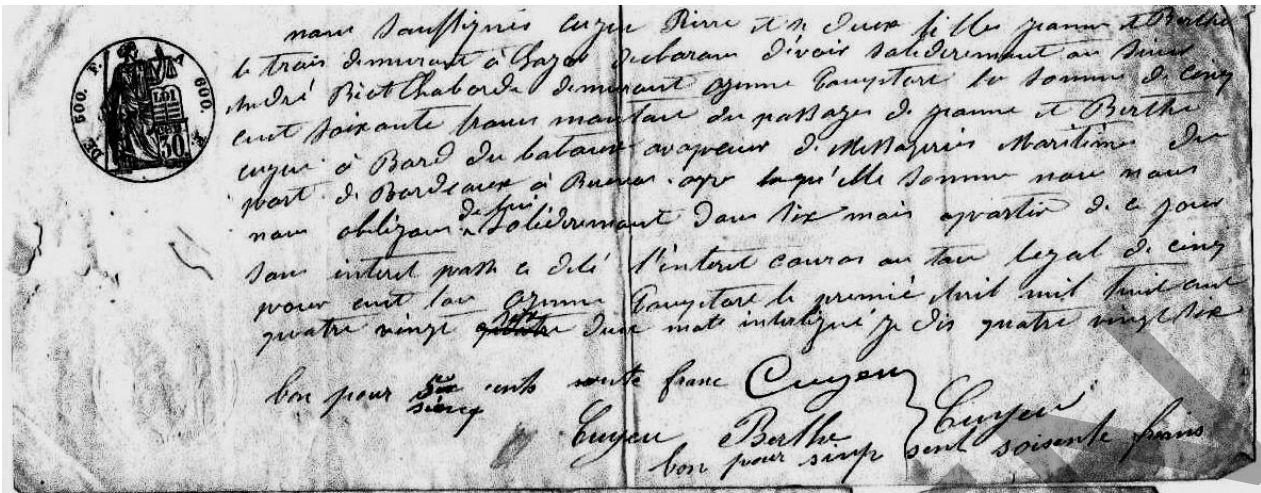 nous Soussignés cuyeu Pierre et se deux filles jeanne et Berthe
le trois demurant à declarons devoir solidérement au Sieur
André Biot Chaborde demeurant la somme de cinq
cent Soixante francs montant du passages de jeanne et Berthe
cuyeu à Bord du bataux avapeur de Messageries Maritimes du
port de Bordeaux à Buenos-ayre laqu'elle Somme nous nous
de lui
nous obligons Solidérement dans six mois apartir de ce jour
sans interet passé ce délé l'interet couras au taux legal de cinq
pour cent l'an le premié Avril mil huit cent
quatre vingt deux mots interligné je dis quatre vingt six
bon pour cents franc Cuyeu
sincq
Cuyeu Berthe Cuyeu
bon pour sinq sent soisente frans
DE 500. F. A 600. F.
LOI
30